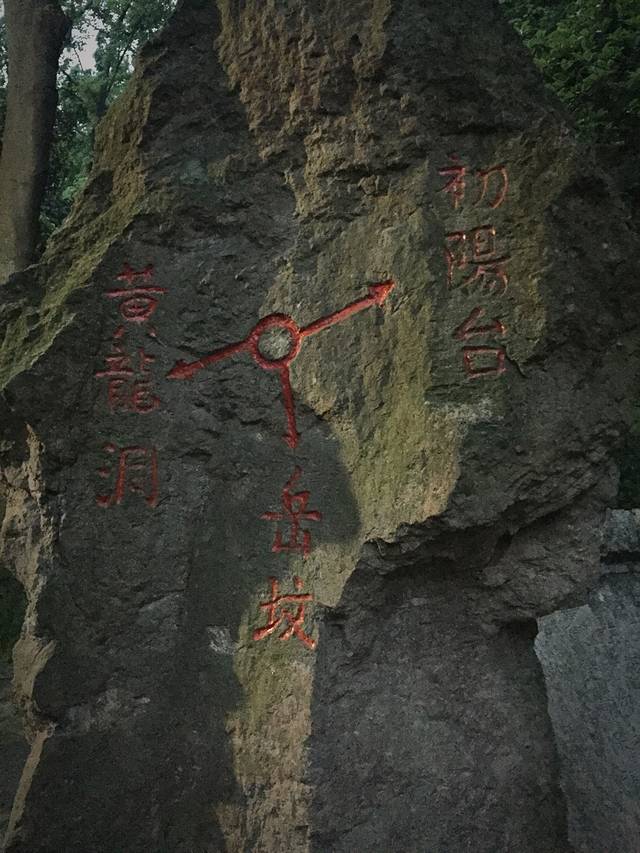 初陽台
黄龍洞
岳坟